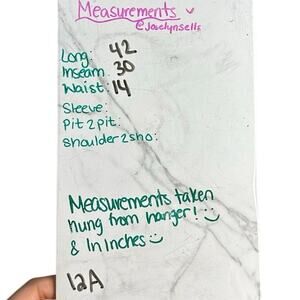 Measurements
@Joselynsells
Long: 42
Inseam: 30
Waist: 14
Sleeve:
Pit 2 pit:
shoulder2sho:
Measurements taken
hung from hanger!
& In Inches
12A